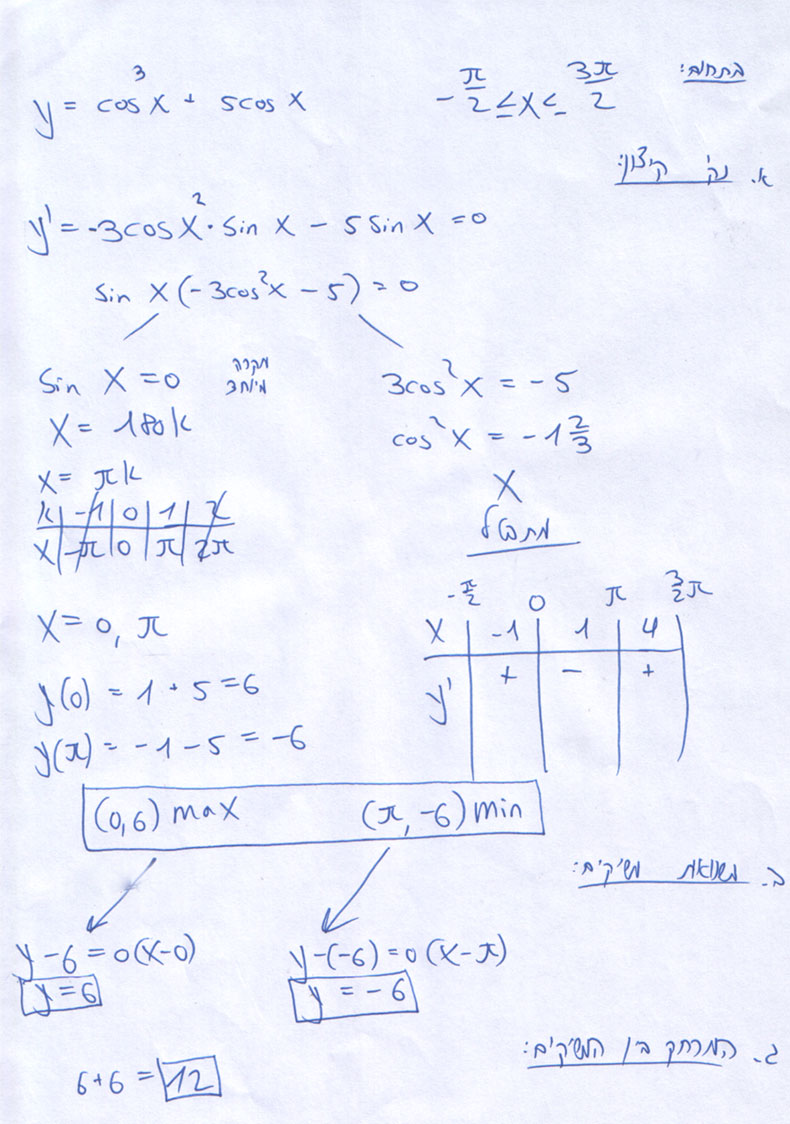 בתחום: -π/2 ≤ x ≤ 3π/2
y = cos³x + 5cos x
א. נק' קיצון:
y' = -3cos x² · sin x - 5 sin x = 0
sin x (-3cos²x - 5) = 0
sin x = 0 מקרה מיוחד
x = 180k
x = πk
k | -1 | 0 | 1 | 2
x | -π | 0 | π | 2π
3cos²x = -5
cos²x = -1 2/3
X
x = 0, π
y(0) = 1 + 5 = 6
y(π) = -1 - 5 = -6
-π/2 0 π 3/2 π
x | -1 | 1 | 4
y' | + | - | +
(0,6) max (π, -6) min
ב. משוואת משיקים:
y - 6 = 0(x-0)
y = 6
y-(-6) = 0(x-π)
y = -6
ג. המרחק בין המשיקים:
6+6 = 12